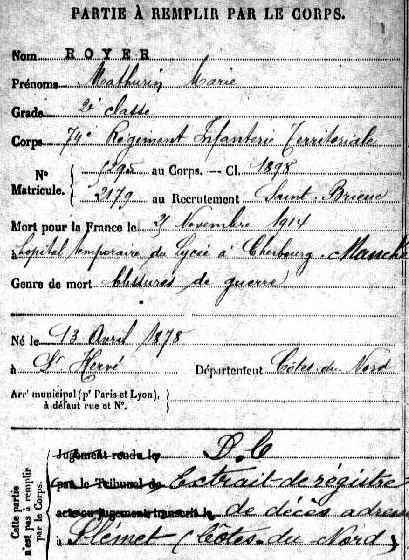 PARTIE À REMPLIR PAR LE CORPS.
Nom ROYER
Prénoms Mathurin Marie
Grade 2e classe
Corps 74e Régiment Infanterie Territoriale
No Matricule. { 1295 au Corps. — Cl. 1898
2179 au Recrutement Saint-Brieuc
Mort pour la France le 21 Novembre 1914
à hôpital temporaire du Lycée à Cherbourg. Manche
Genre de mort blessures de guerre
Né le 13 Avril 1878
à St Hervé Département Côtes-du-Nord
Arrt municipal (pr Paris et Lyon),
à défaut rue et No.
Cette partie n'est pas à remplir par le Corps.
Jugement rendu le D.C
par le Tribunal de Extrait de régistre
acte ou jugement transcrit le de décès adressé
à Plémet (Côtes du Nord)